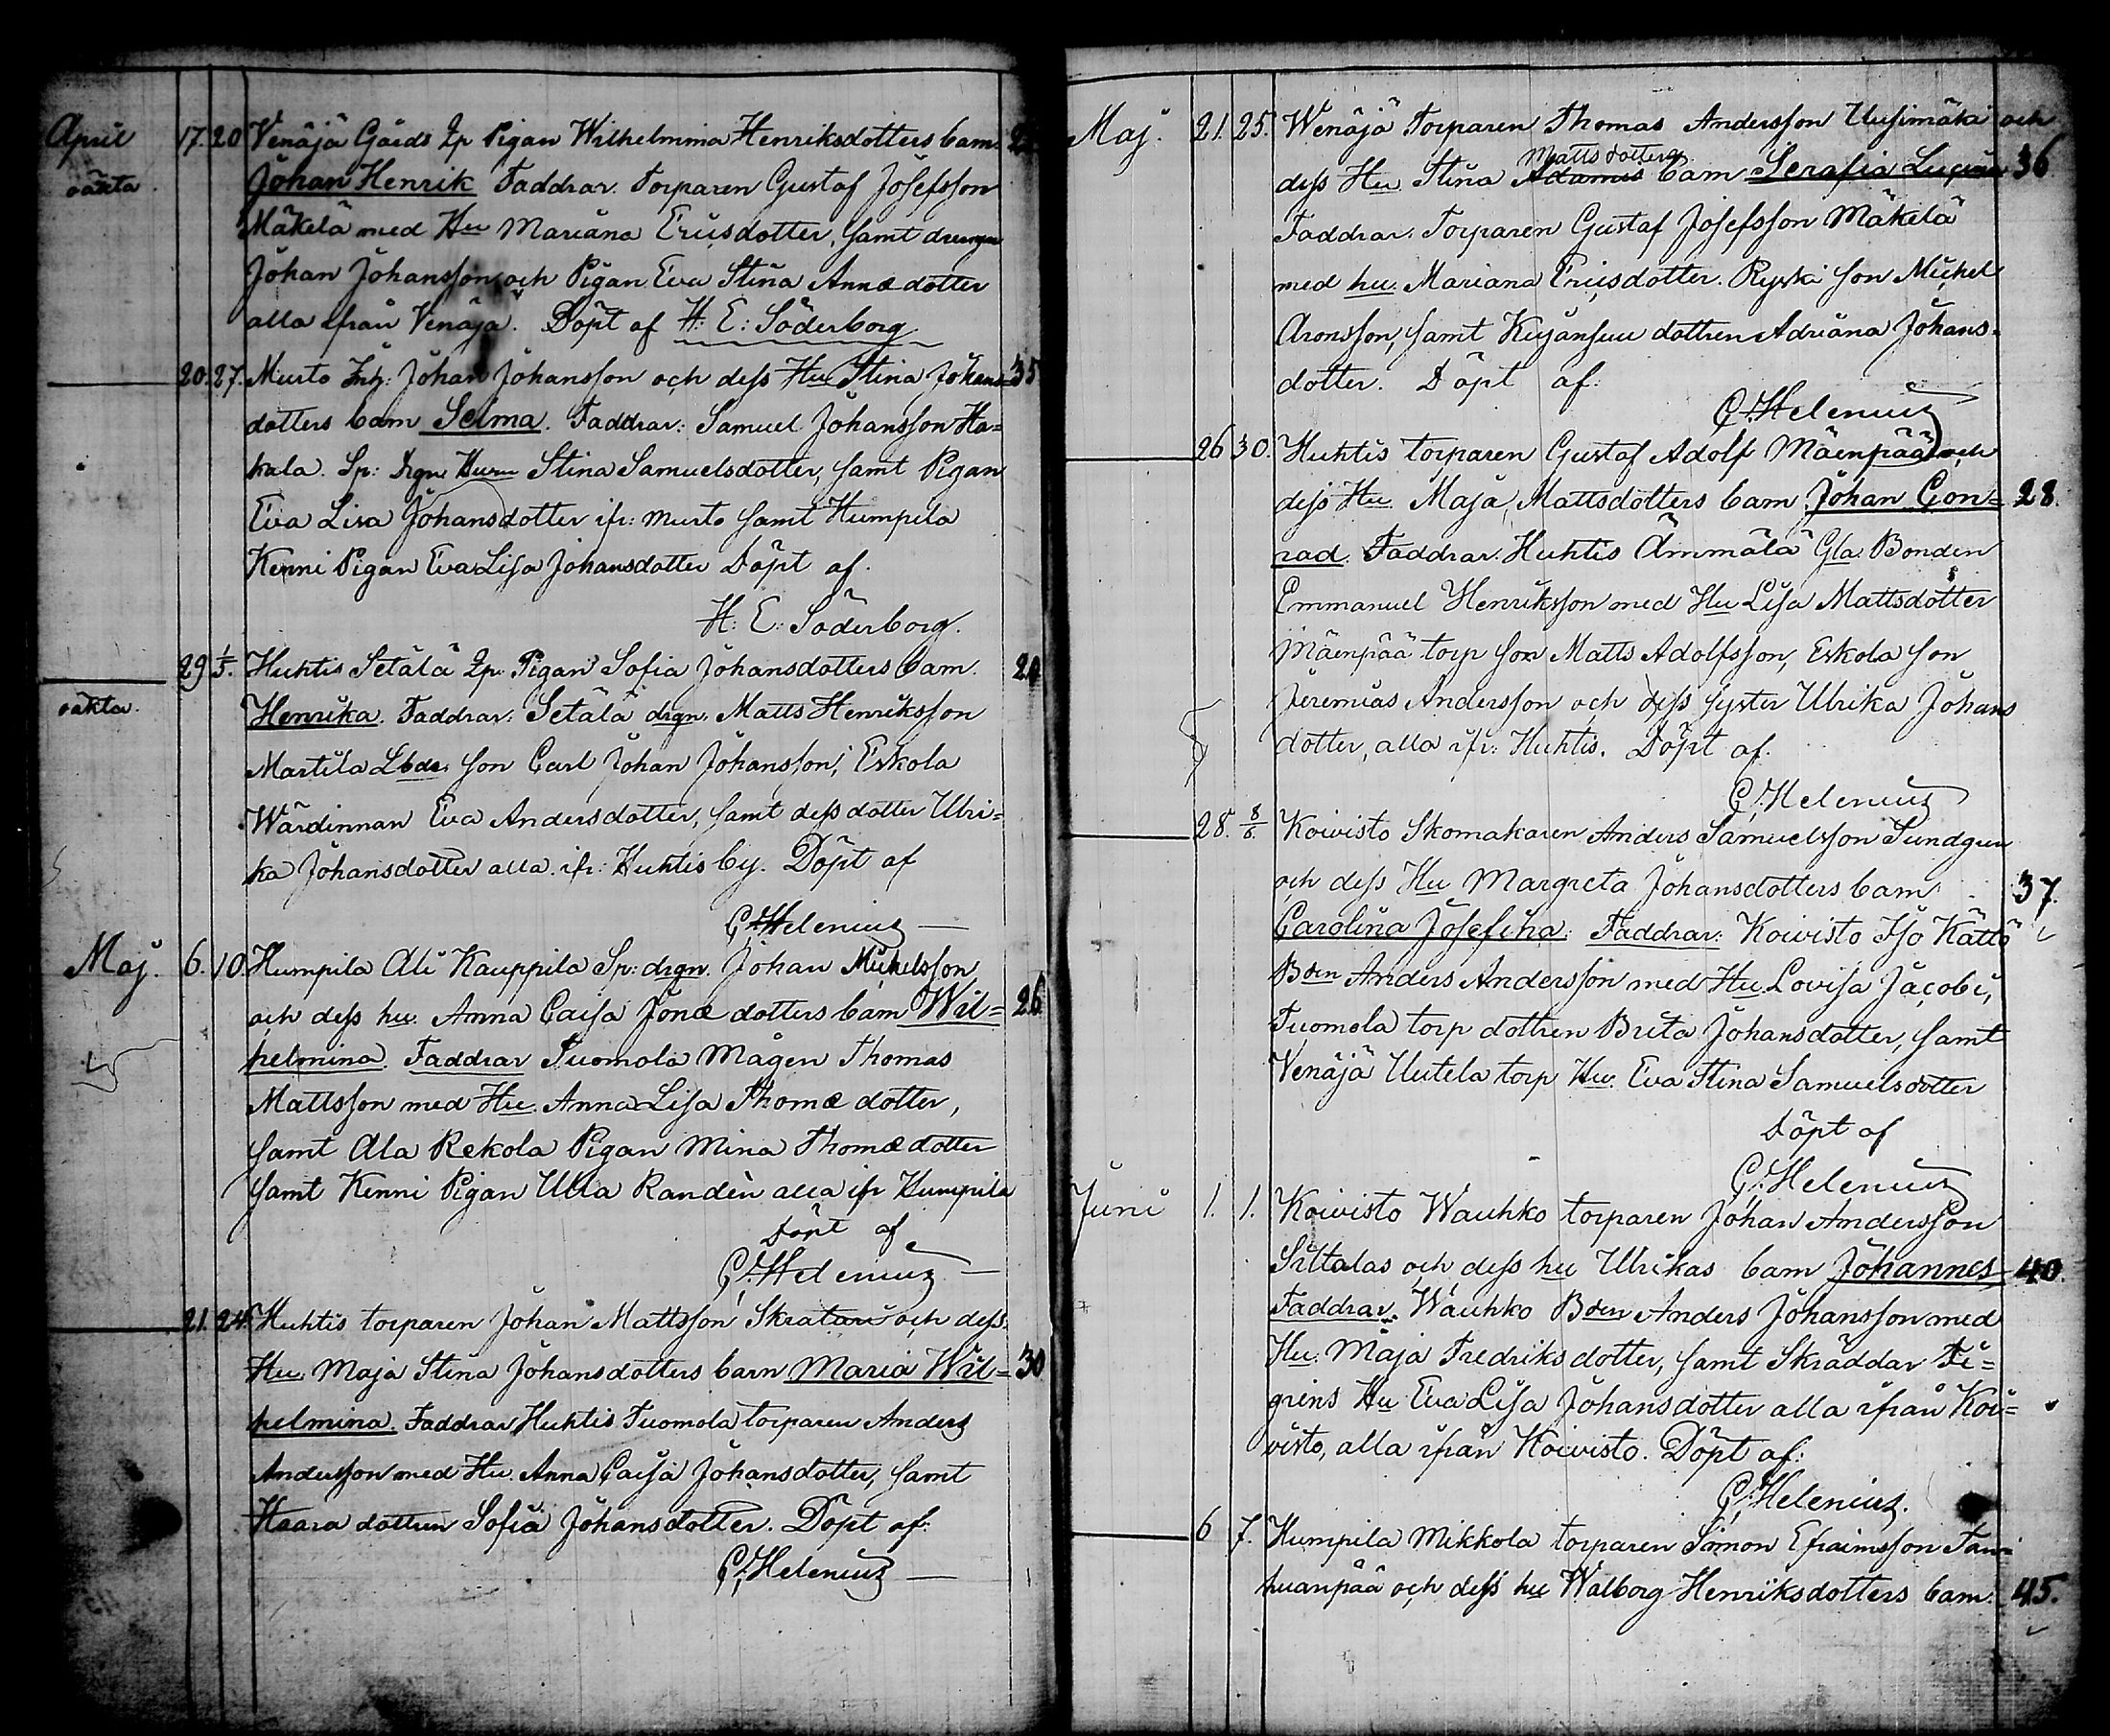 April 17. 20 Venäjä Gårds Ip Pigan Wilhelmina Henriksdotters barn
oäkta. Johan Henrik Faddrar. Torparen Gustaf Josefsson
Mäkelä med Hu Mariana Ericsdotter, samt drengen
Johan Johansson och Pigan Eva Stina Annæ dotter
alla ifrån Venäjä. Döpt af H: E: Söderborg
20. 27. Murto Inh: Johan Johansson och dess Hu Stina Johans= 35
dotters barn Selma. Faddrar: Samuel Johansson Ha=
kala. Sp: Drgn Hu Stina Samuelsdotter, samt Pigan
Eva Lisa Johansdotter ifr: Murto samt Humpila
Kenni Pigan Eva Lisa Johansdotter Döpt af.
H: E: Söderborg.
29 1/5. Huhtis Setälä Ip. Pigan Sofia Johansdotters barn.
oäkta. Henrika. Faddrar: Setälä drgn. Matts Henriksson
Martila Lbde. son Carl Johan Johansson, Eskola
Wärdinnan Eva Andersdotter, samt dess dotter Ulri=
ka Johansdotter alla ifr: Huhtis by. Döpt af
G: Helenius
Maj. 6. 10. Humpila Ali Kauppila Sp: drgn. Johan Michelsson
och dess hu. Anna Caisa Jonæ dotters barn Wil= 26
helmina. Faddrar Tuomola Mågen Thomas
Mattsson med Hu. Anna Lisa Thomæ dotter,
samt Ala Rekola Pigan Mina Thomædotter
samt Kenni Pigan Ulla Randèn alla ifr Humpila
Döpt af
G: Helenius
21. 24. Huhtis torparen Johan Mattsson Skratari och dess
Hu. Maja Stina Johansdotters barn Maria Wil= 30
helmina. Faddrar Huhtis Tuomola torparen Anders
Andersson med Hu. Anna Caisa Johansdotter, samt
Haara dottren Sofia Johansdotter. Döpt af:
G: Helenius
Maj. 21. 25. Wenäjä Torparen Thomas Andersson Uusimäki och
Mattsdotters
dess Hu Stina Adamis barn Serafia Lucina 36
Faddrar. Torparen Gustaf Josefsson Mäkelä
med hu. Mariana Ericsdotter. Ryski son Michel
Aronsson, samt Kujansuu dottren Adriana Johans=
dotter. Döpt af:
G: Helenius
26 30. Huhtis torparen Gustaf Adolf Mäenpää och
dess Hu Maja Mattsdotters barn Johan Con= 28.
rad. Faddrar. Huhtis Ämmälä Gla. Bonden
Emmanuel Henriksson med Hu Lisa Mattsdotter
Mäenpää torp son Matts Adolfsson, Eskola son
Jeremias Andersson och dess syster Ulrika Johans
dotter, alla ifr: Huhtis. Döpt af.
G: Helenius
28. 8/6. Koivisto Skomakaren Anders Samuelsson Sundgren
och dess Hu Margreta Johansdotters barn 37.
Carolina Josefina. Faddrar: Koivisto Iso Kättö
Bden Anders Andersson med Hu Lovisa Jacobi,
Tuomola torp dottren Brita Johansdotter, samt
Venäjä Uutela torp Hu. Eva Stina Samuelsdotter
Döpt af
G: Helenius
Juni 1. 1. Koivisto Wauhko torparen Johan Andersson
Siltalas och dess hu Ulrikas barn Johannes 40.
Faddrar. Wauhko Bden Anders Johansson med
Hu. Maja Fredriksdotter, samt Skräddar Ti=
grens Hu Eva Lisa Johansdotter alla ifrån Koi=
visto, alla ifrån Koivisto. Döpt af:
G: Helenius.
6 7. Humpila Mikkola torparen Simon Efraimsson Tan=
huanpää och dess hu Walborg Henriksdotters barn. 45.